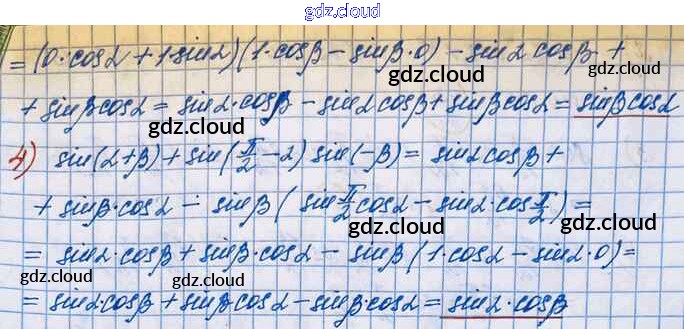 gdz.cloud
= (0·cosα + 1·sinα)(1·cosβ – sinβ·0) – sinα cosβ +
gdz.cloud gdz.cloud
+ sinβcosα = sinα·cosβ – sinαcosβ + sinβcosα = sinβcosα
gdz.cloud gdz.cloud
4) sin(α+β) + sin(π/2 – α) sin(–β) = sinαcosβ +
+ sinβ·cosα – sinβ (sin π/2 cosα – sinα·cos π/2) =
gdz.cloud gdz.cloud
= sinα·cosβ + sinβ·cosα – sinβ (1·cosα – sinα·0) =
gdz.cloud gdz.cloud
= sinα·cosβ + sinβ·cosα – sinβ·cosα = sinα·cosβ
gdz.cloud gdz.cloud